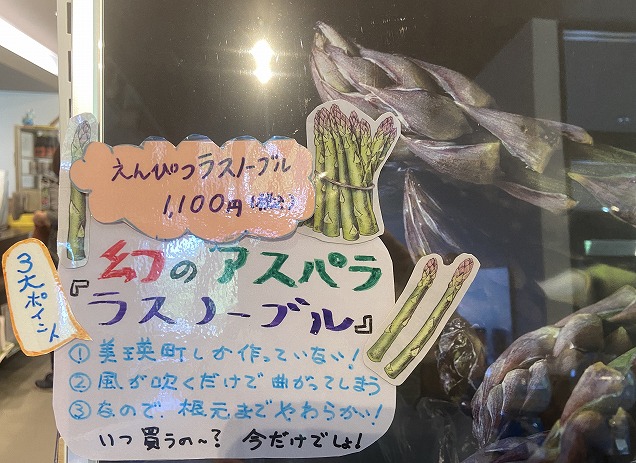 えんぴつラスノーブル
1,100円(税込)
3大ポイント
幻のアスパラ
『ラスノーブル』
①美瑛町しか作っていない!
②風が吹くだけで曲がってしまう
③なので 根元までやわらかい!
いつ買うの〜? 今だけでしょ!